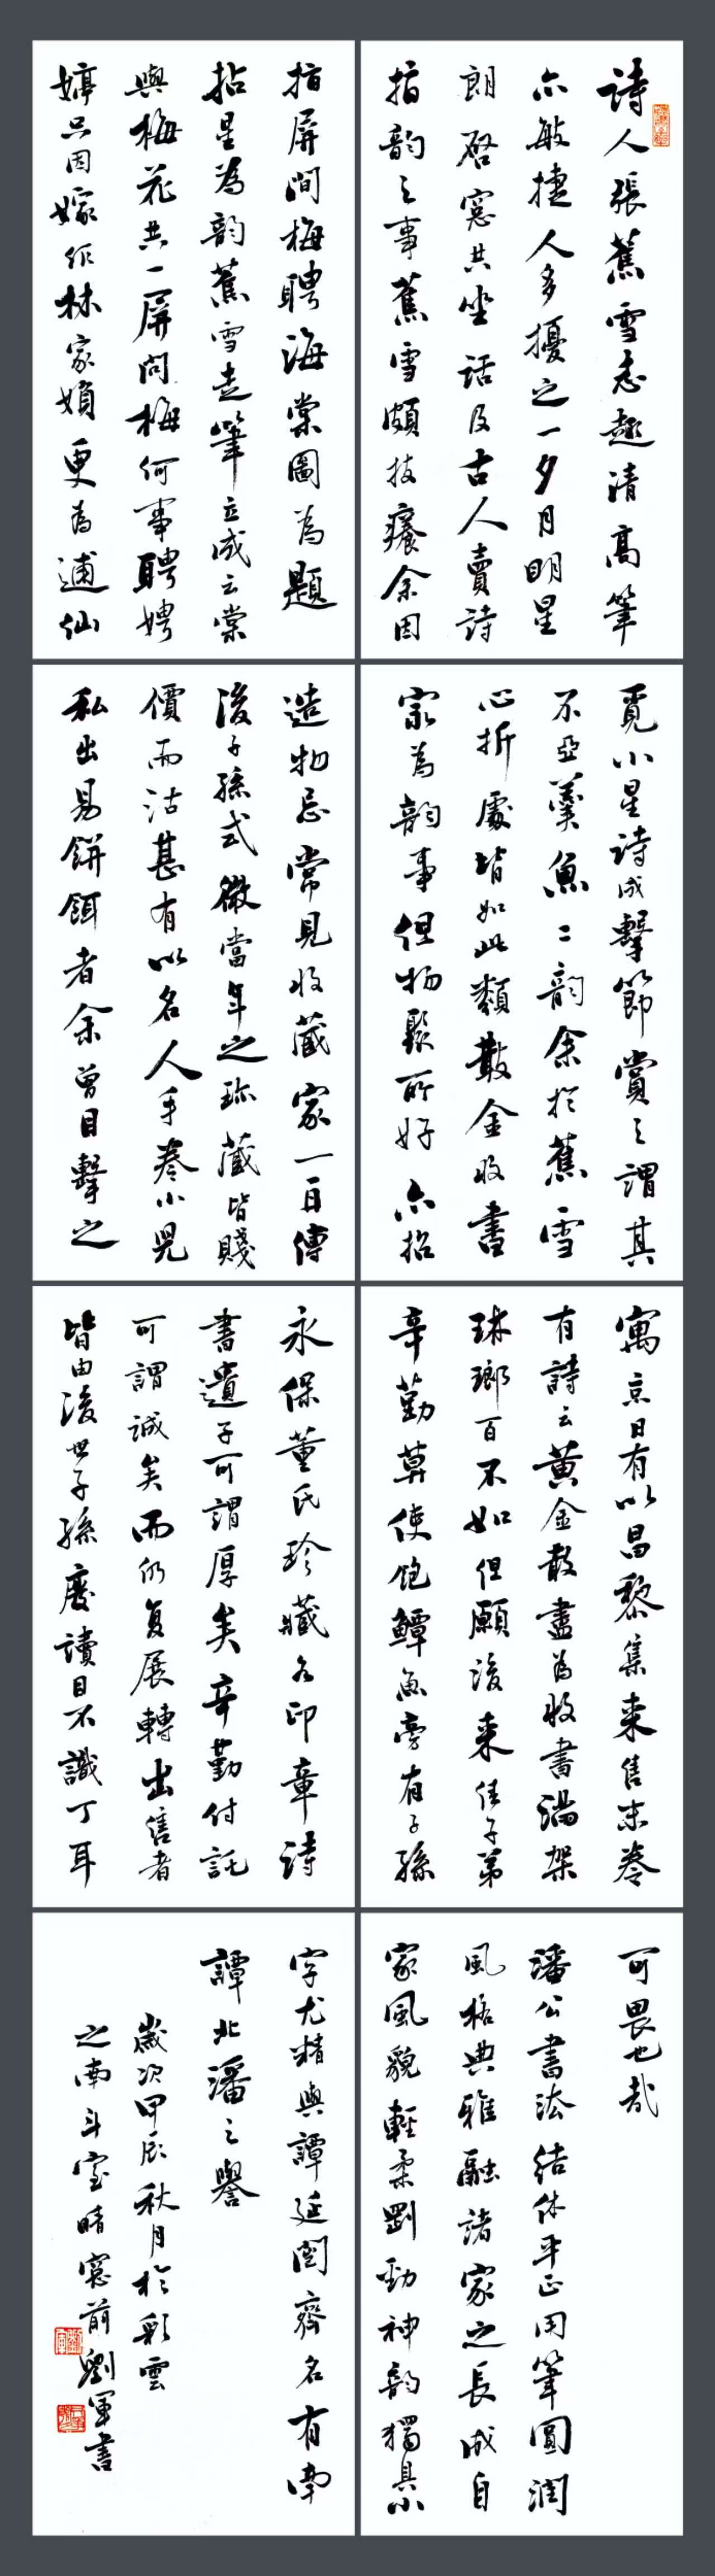 詩人張蕉雪志趣清高筆
亦敏捷人多擾之一夕月明星
朗啓窓共坐話及古人賣詩
指韵之事蕉雪頗技癢余因
指屏間梅聘海棠圖為題
拈星為韵蕉雪走筆立成云棠
與梅花共一屏問梅何事聘娉
婷只因嫁作林家婦更為逋仙
覓小星詩成擊節賞之謂其
不亞羹魚二韵余於蕉雪
心折處皆如此類散金收書
家為韵事但物聚所好亦招
造物忌常見收藏家一日傳
後子孫式微當年之珎藏皆賤
價而沽甚有以名人手卷小兒
私出易餅餌者余曾目擊之
寓京日有以昌黎集来售末卷
有詩云黃金散盡為收書滿架
琳瑯百不如但願後来佳子弟
辛勤莫使飽蟫魚旁有子孫
永保董氏珍藏各印章詩
書遺子可謂厚矣辛勤付託
可謂誠矣而仍复展轉出售者
皆由後世子孫廢讀目不識丁耳
可畏也哉
潘公書法結体平正用筆圓潤
風格典雅融諸家之長成自
家風貌輕柔剛勁神韵獨具小
字尤精與譚延闓齊名有南
譚北潘之譽
歲次甲辰秋月於彩雲
之南斗室晴窓前劉軍書